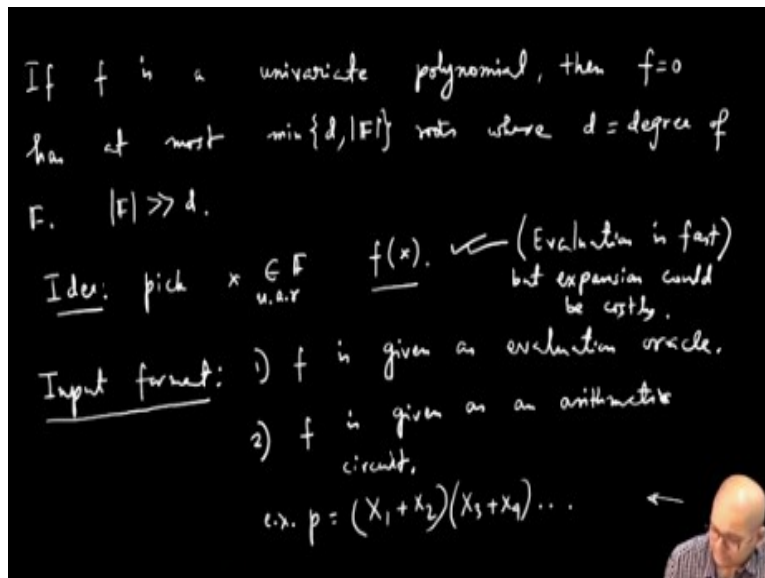 If f is a univariate polynomial, then f=0
has at most min{d,|𝔽|} roots where d = degree of
𝔽. |𝔽| ≫ d.
Idea: pick x ∈ 𝔽 f(x). ← (Evaluation is fast)
u.a.r but expansion could
be costly.
Input format: 1) f is given as evaluation oracle.
2) f is given as an arithmetic
circuit.
e.x. p = (X₁+X₂)(X₃+X₄)... ←